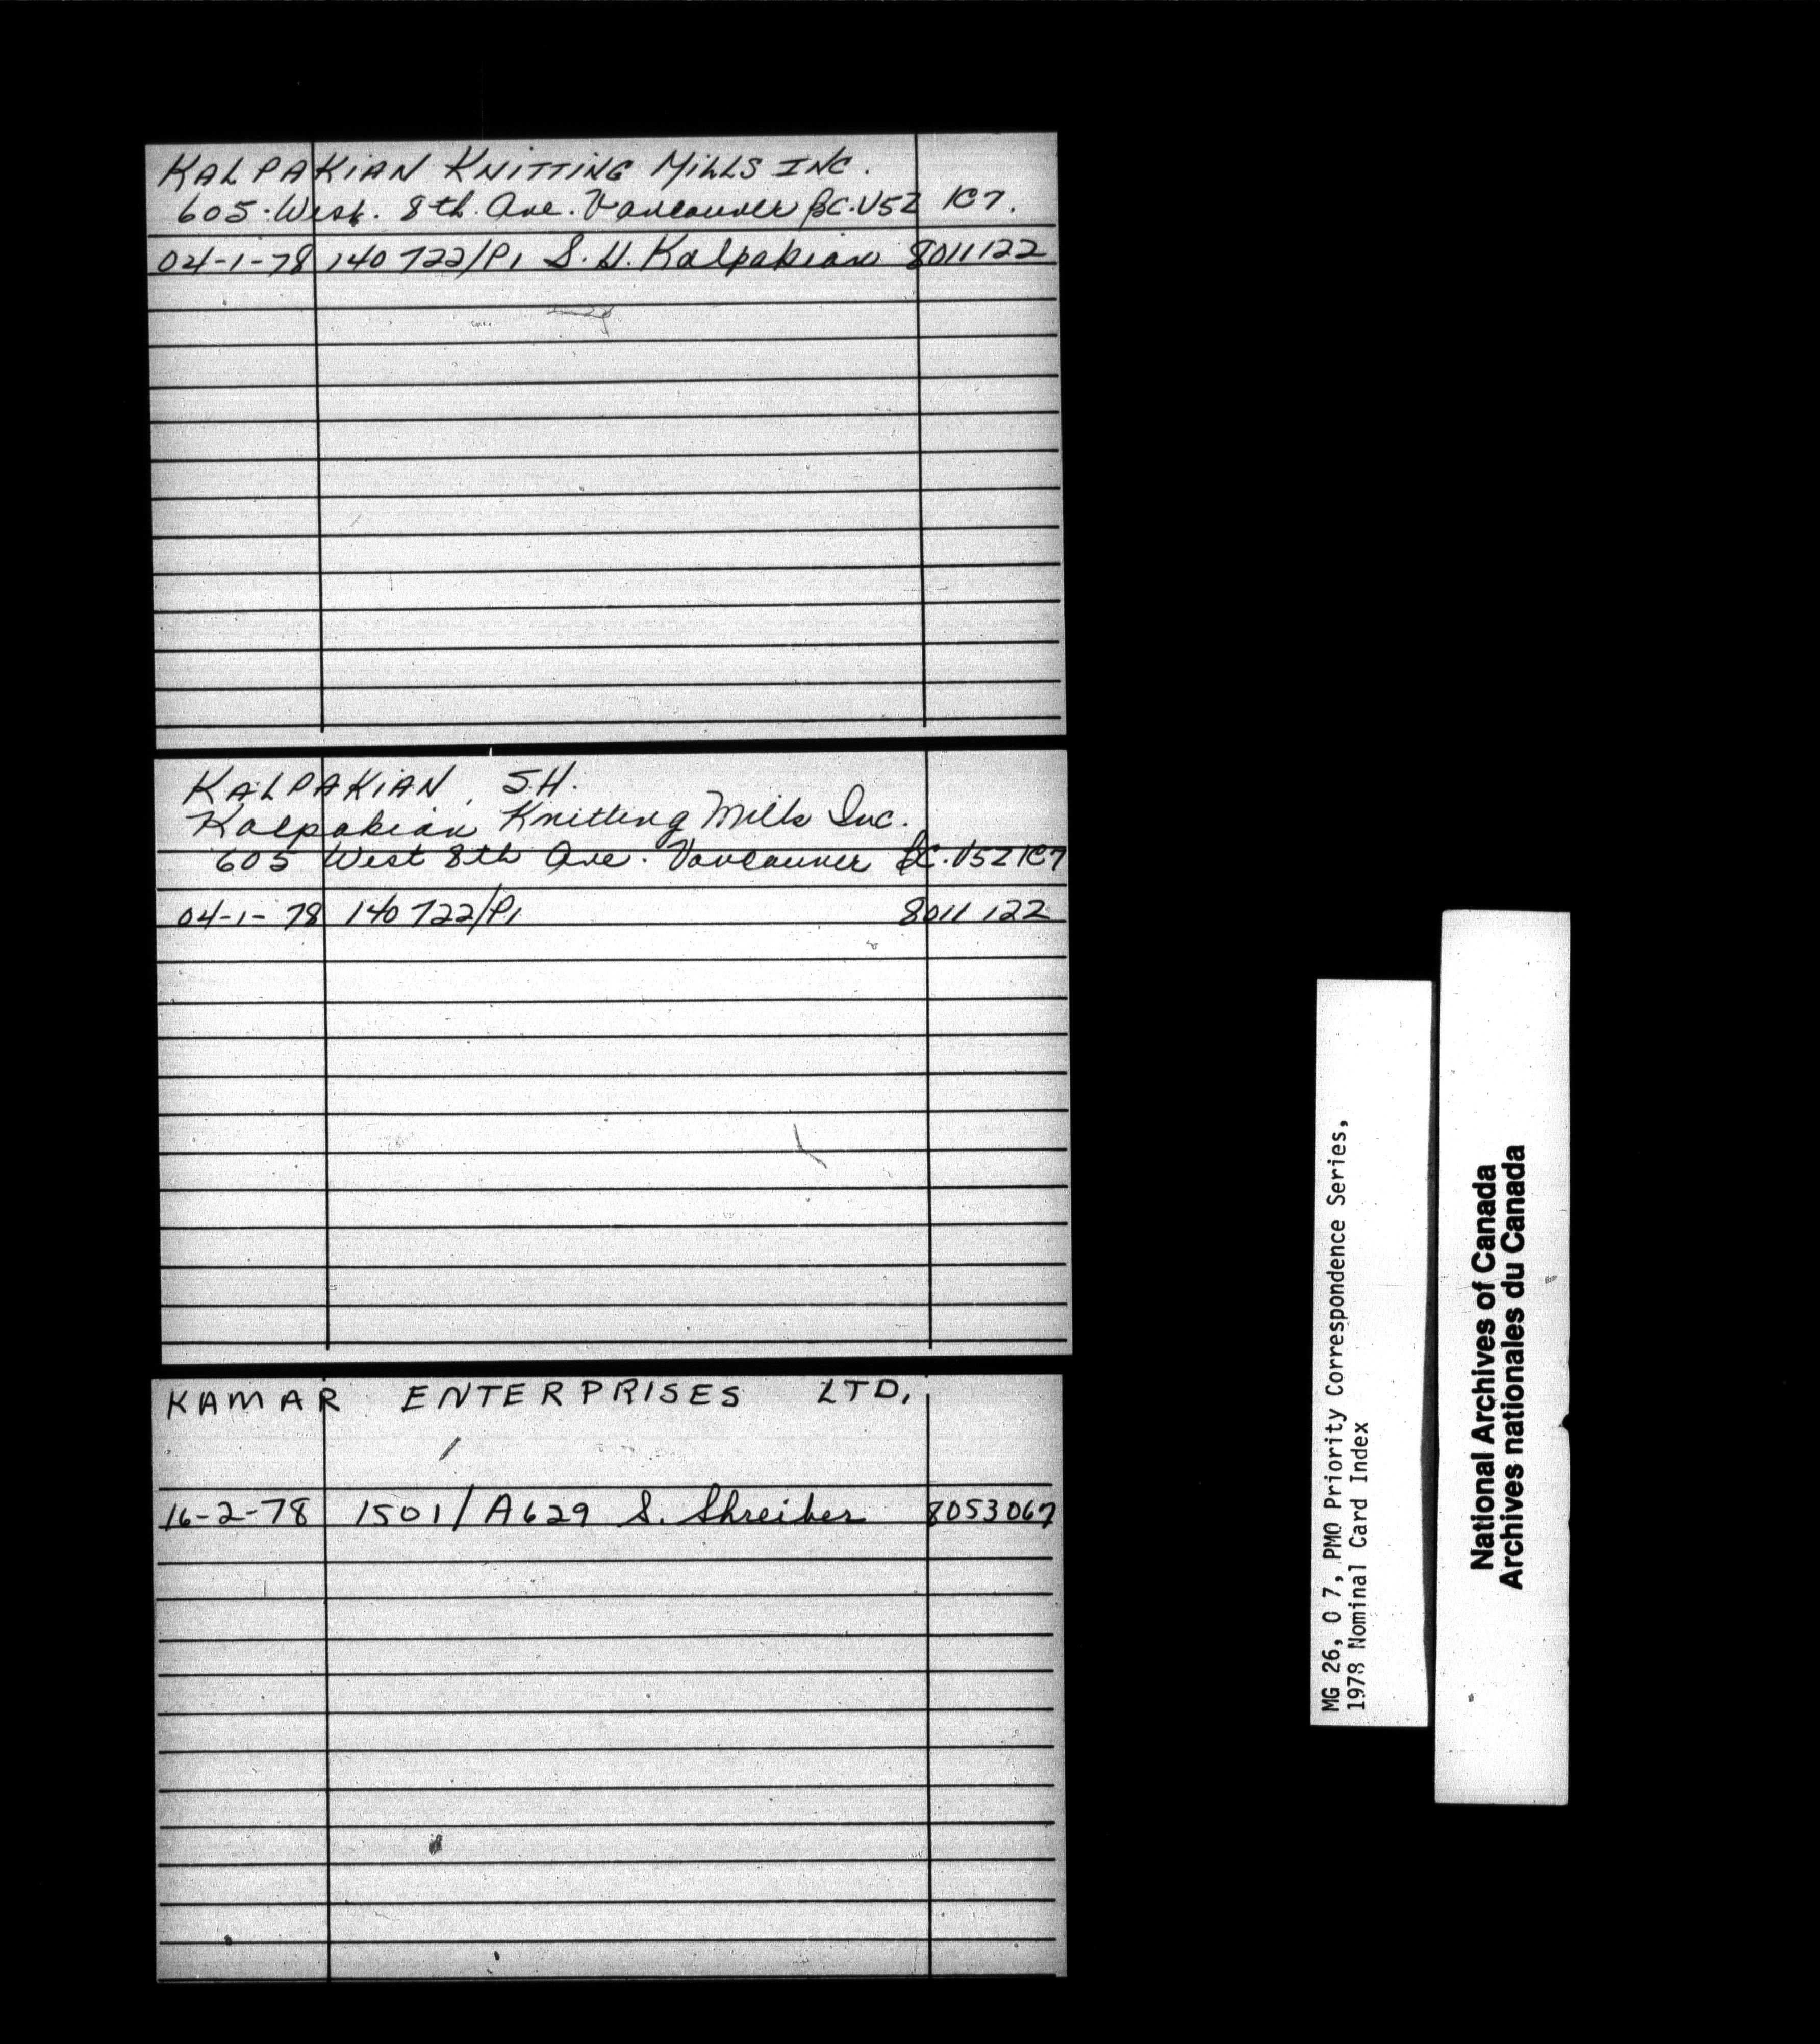 KALPAKIAN KNITTING MILLS INC.
605 West. 8th. Ave. Vancouver BC. V5Z 1C7.
04-1-78 140 722/P1 S. H. Kalpakian 8011122
KALPAKIAN, S.H.
Kalpakian Knitting Mills Inc.
605 West 8th Ave. Vancouver BC. V5Z 1C7
04-1-78 140 722/P1 8011 122
KAMAR ENTERPRISES LTD.
16-2-78 1501/A629 S. Shreiber 8053067
MG 26, O 7, PMO Priority Correspondence Series,
1978 Nominal Card Index
National Archives of Canada
Archives nationales du Canada